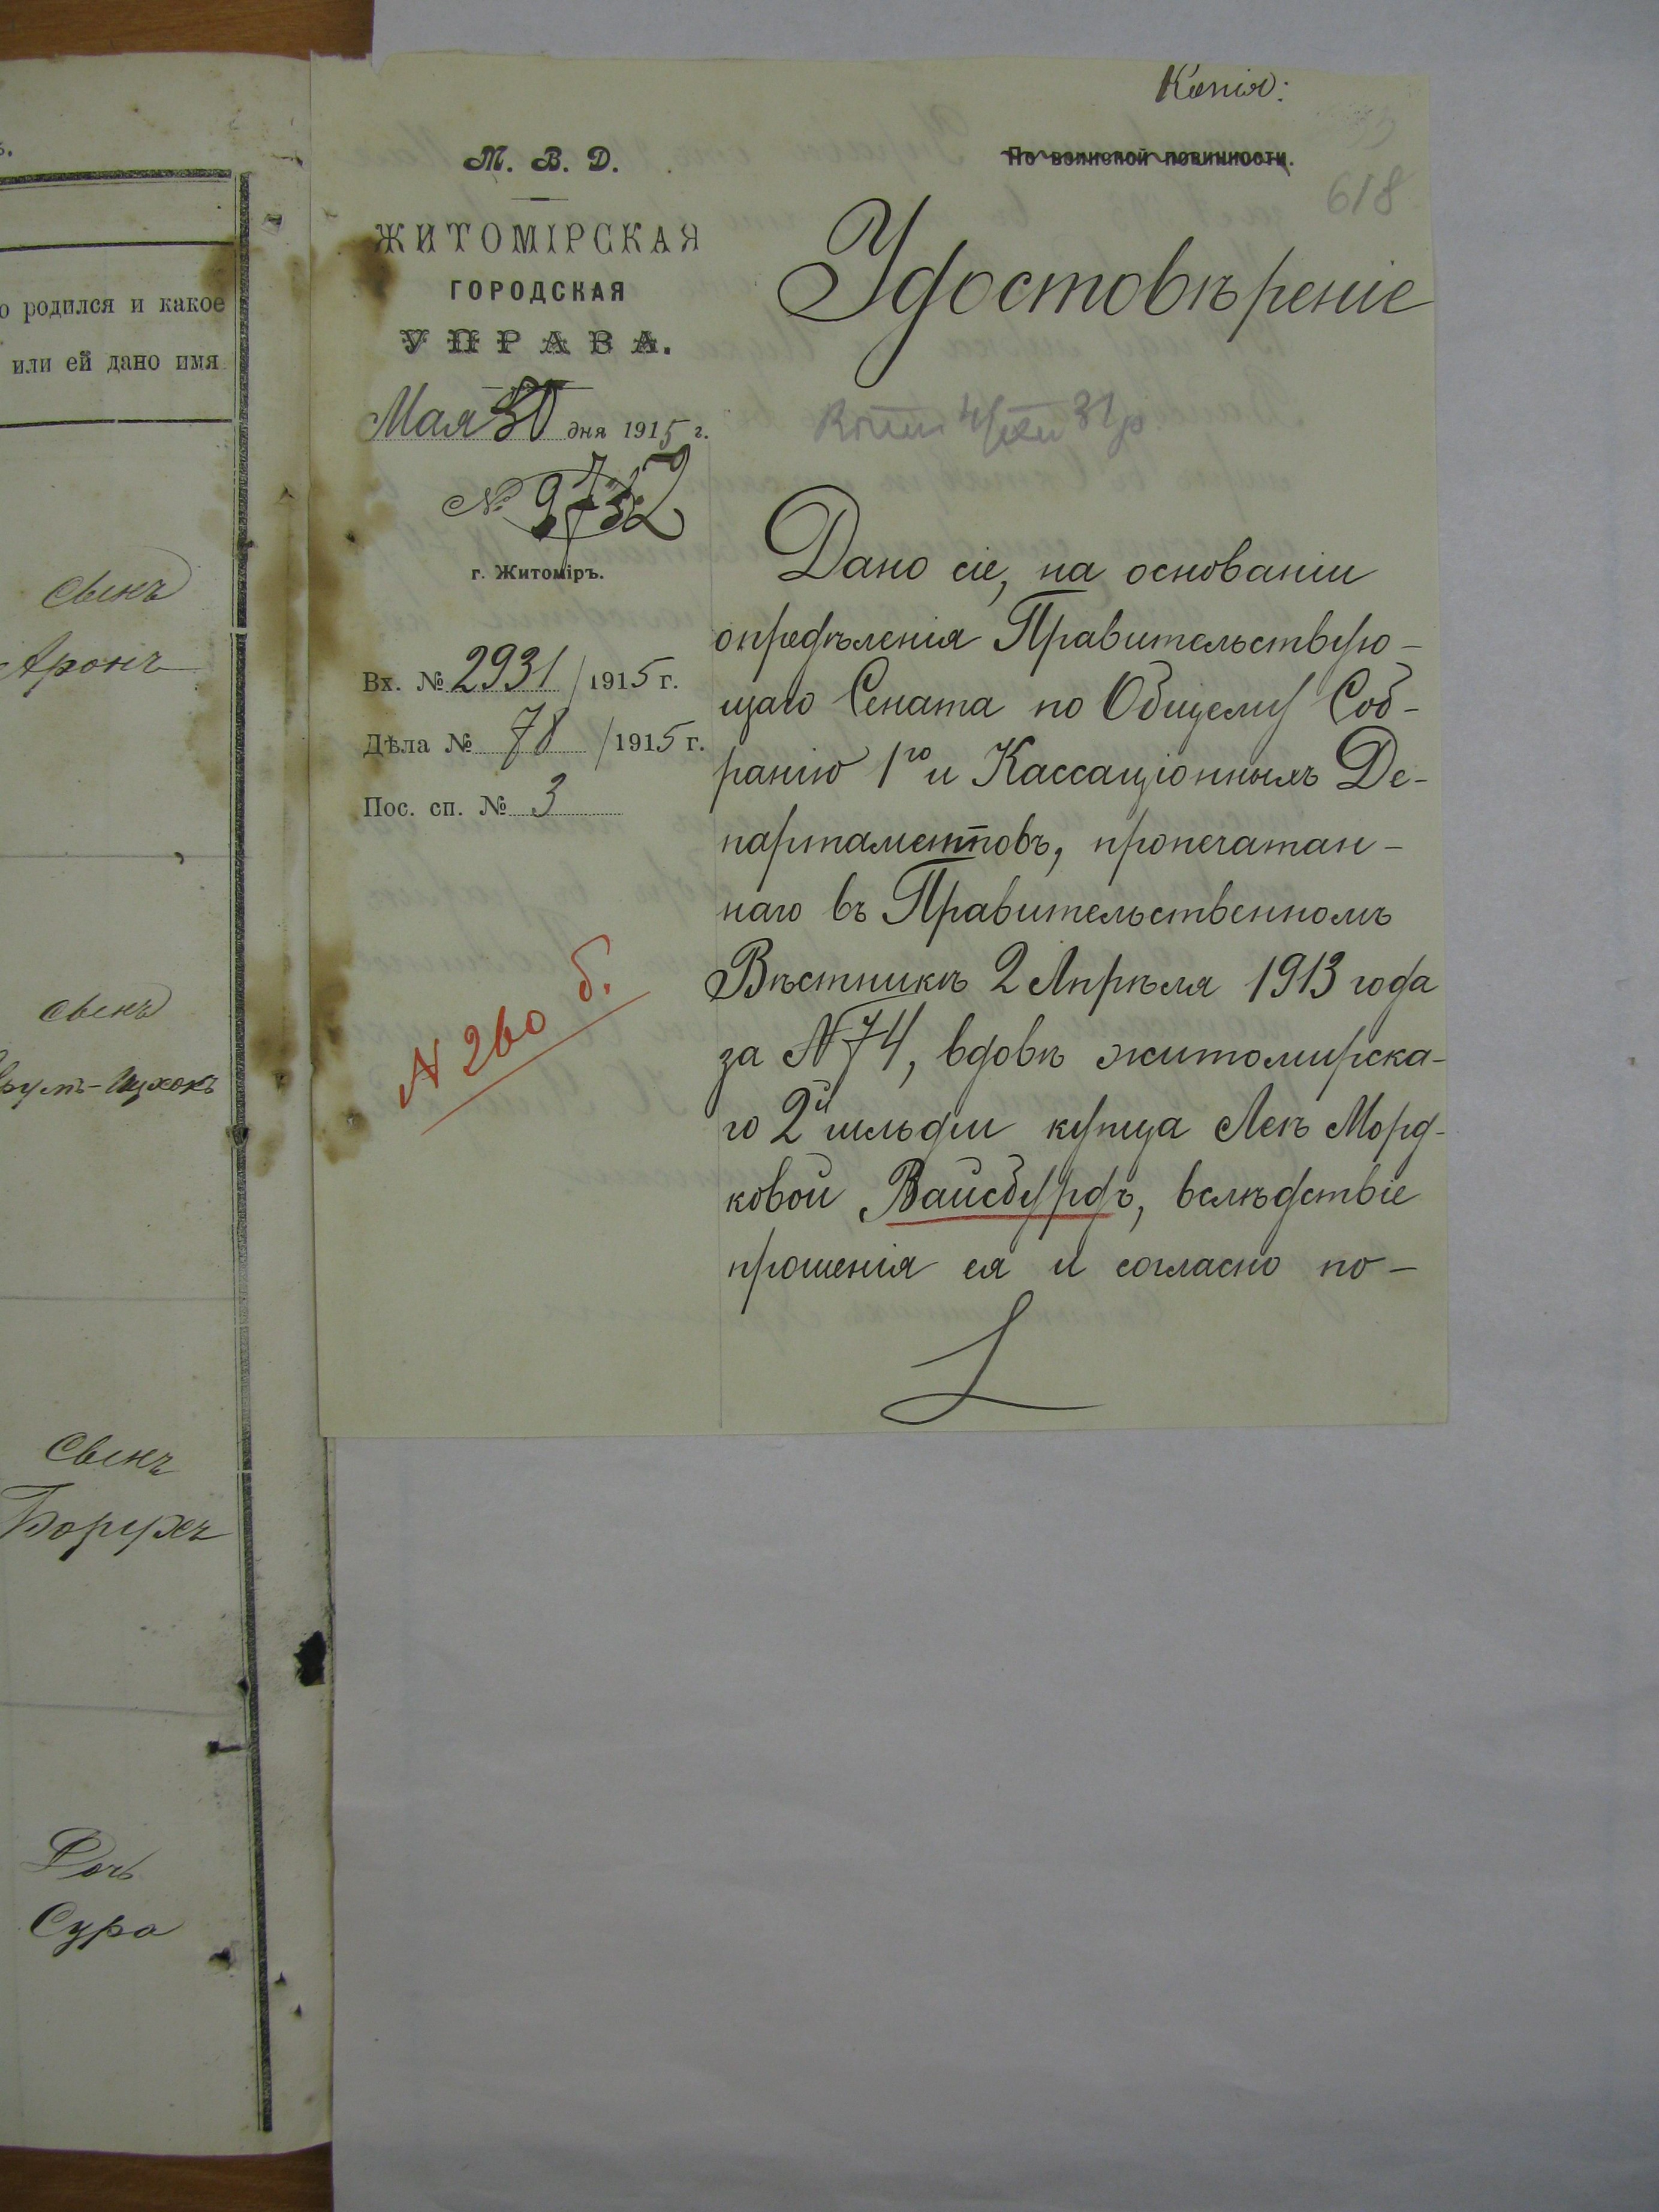 о родился и какое
или ей дано имя
Сынъ
Аронъ
Сынъ
Ицхокъ
Сынъ
Борухъ
Дочь
Сура
Копія:
М. В. Д.
По воинской повинности.
618
ЖИТОМІРСКАЯ
ГОРОДСКАЯ
УПРАВА.
Удостовѣреніе
Мая 30 дня 1915 г.
№ 9732
г. Житоміръ.
Вх. № 2931 / 1915 г.
Дѣла № 78 / 1915 г.
Пос. сп. № 3
N 260 б.
Дано сіе, на основаніи
опредѣленія Правительствую-
щаго Сената по Общему Соб-
ранію 1го и Кассаціонныхъ Де-
партаментовъ, пропечатан-
наго въ Правительственномъ
Вѣстникѣ 2 Апрѣля 1913 года
за N 74, вдовѣ житомирска-
го 2й гильдіи купца Леѣ Морд-
ковой Вайсбурдъ, вслѣдствіе
прошенія ея и согласно по-